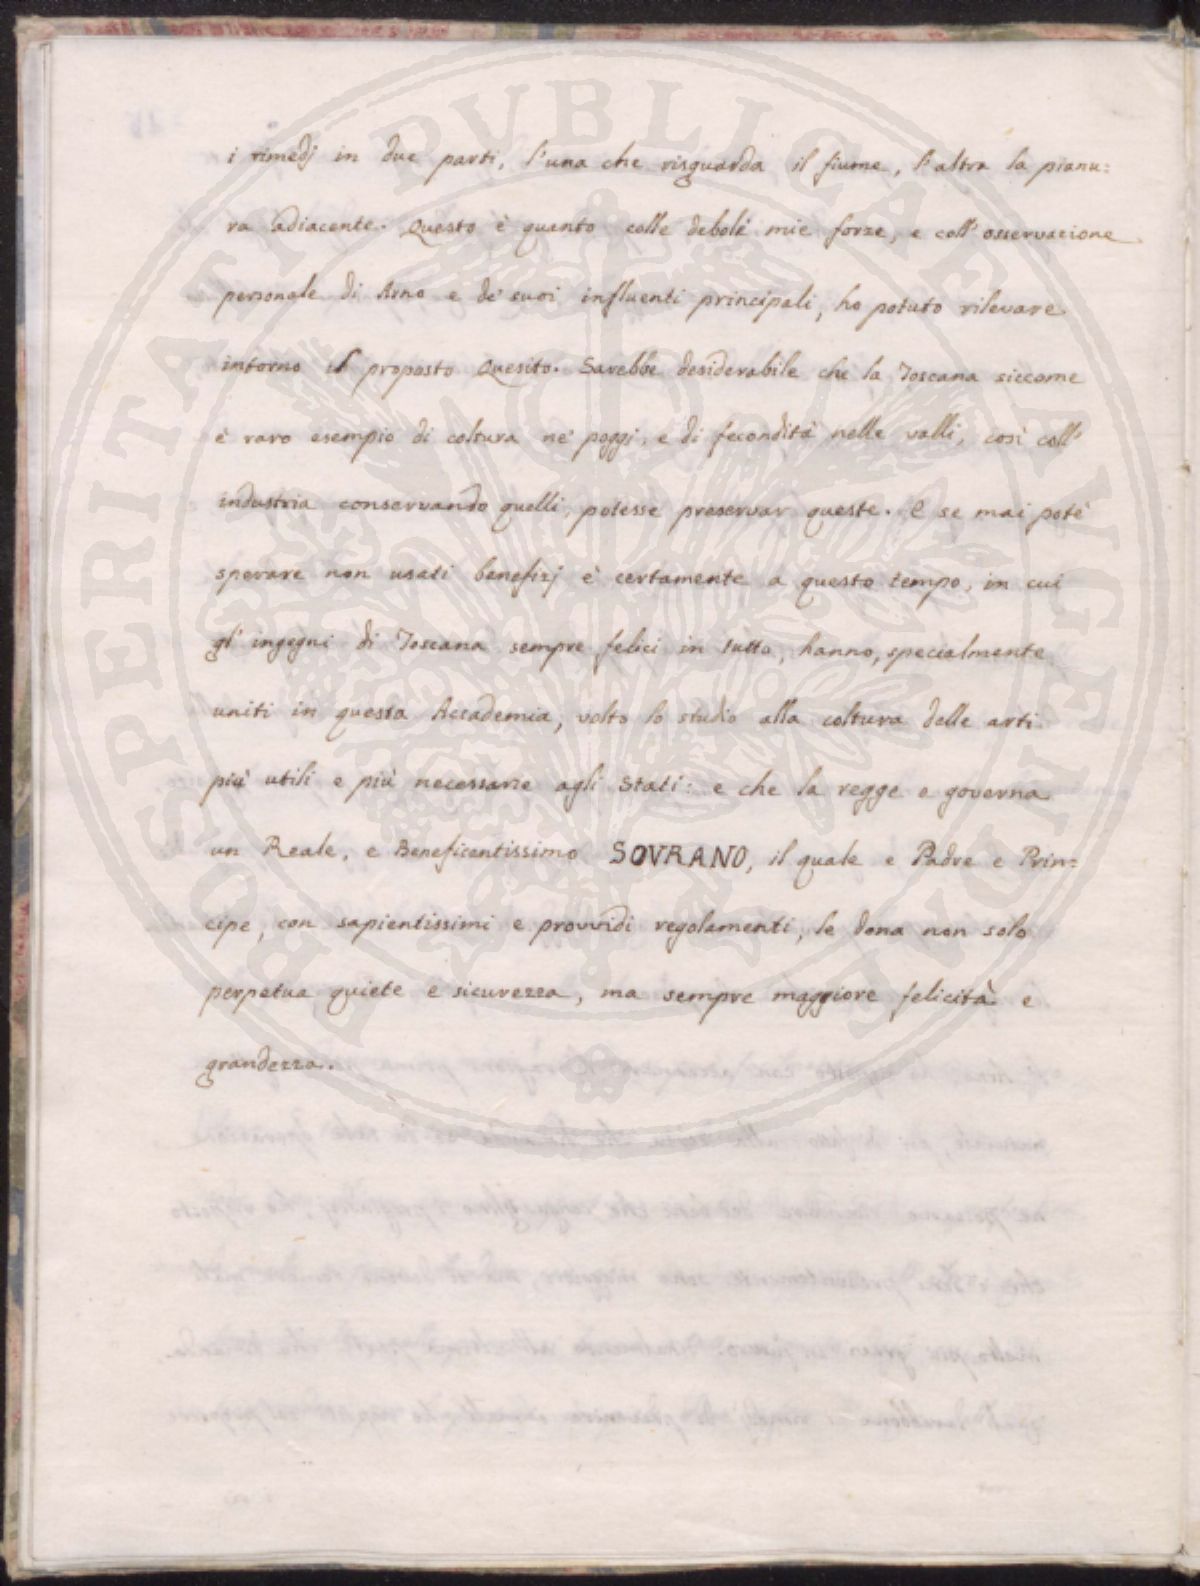 i rimedj in due parti, l'una che risguarda il fiume, l'altra la pianu=
ra adiacente. Questo è quanto colle deboli mie forze, e coll'osservazione
personale di Arno e de' suoi influenti principali, ho potuto rilevare
intorno il proposto Quesito. Sarebbe desiderabile che la Toscana siccome
è raro esempio di coltura ne' poggj, e di fecondità nelle valli, così coll'
industria conservando quelli, potesse preservar queste. E se mai potè
sperare non usati benefizj è certamente a questo tempo, in cui
gl'ingegni di Toscana sempre felici in tutto, hanno, specialmente
uniti in questa Accademia, volto lo studio alla coltura delle arti
più utili e più necessarie agli Stati: e che la regge e governa
un Reale, e Beneficentissimo SOVRANO, il quale e Padre e Prin=
cipe, con sapientissimi e provvidi regolamenti, le dona non solo
perpetua quiete e sicurezza, ma sempre maggiore felicità e
grandezza.
PROSPERITATI PUBLICAE AUGENDAE